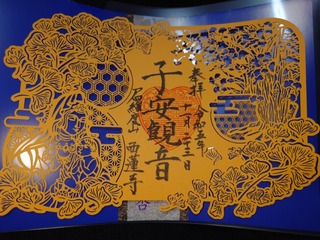 奉拝
令和五年
十一月二十三日
子安観音
西蓮寺